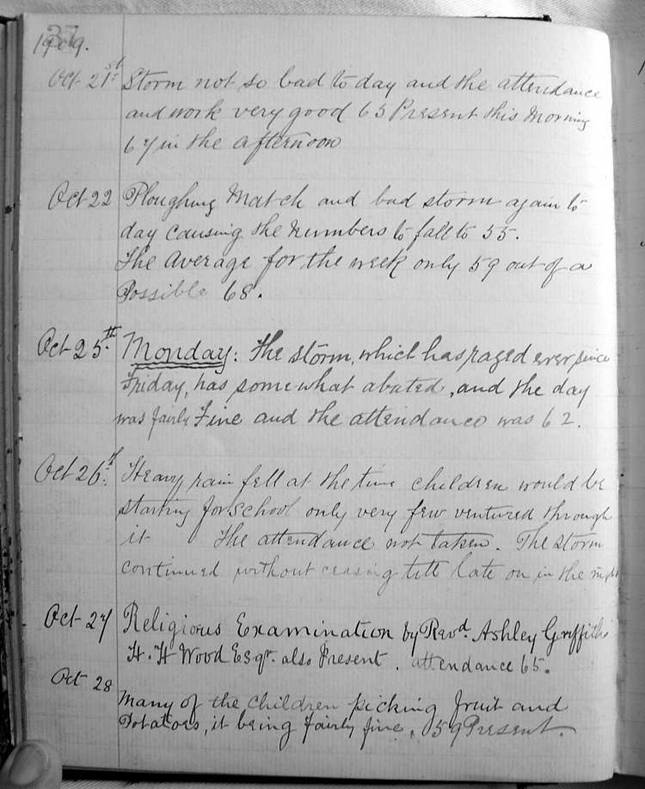 1909.
Oct 21st Storm not so bad to day and the attendance
and work very good 65 Present this Morning
67 in the afternoon
Oct 22 Ploughing Match and bad storm again to
day causing the numbers to fall to 55.
The Average for the week only 59 out of a
Possible 68.
Oct 25th Monday: The storm, which has raged ever since
Friday, has somewhat abated, and the day
was fairly Fine and the attendance was 62.
Oct 26th Heavy rain fell at the time children would be
starting for School only very few ventured through
it The attendance not taken. The storm
continued without ceasing till late on in the night
Oct 27 Religious Examination by Revd. Ashley Griffiths
H. H Wood Esqr. also Present. attendance 65.
Oct 28
Many of the children picking fruit and
Potatoes, it being fairly fine, 59 Present.